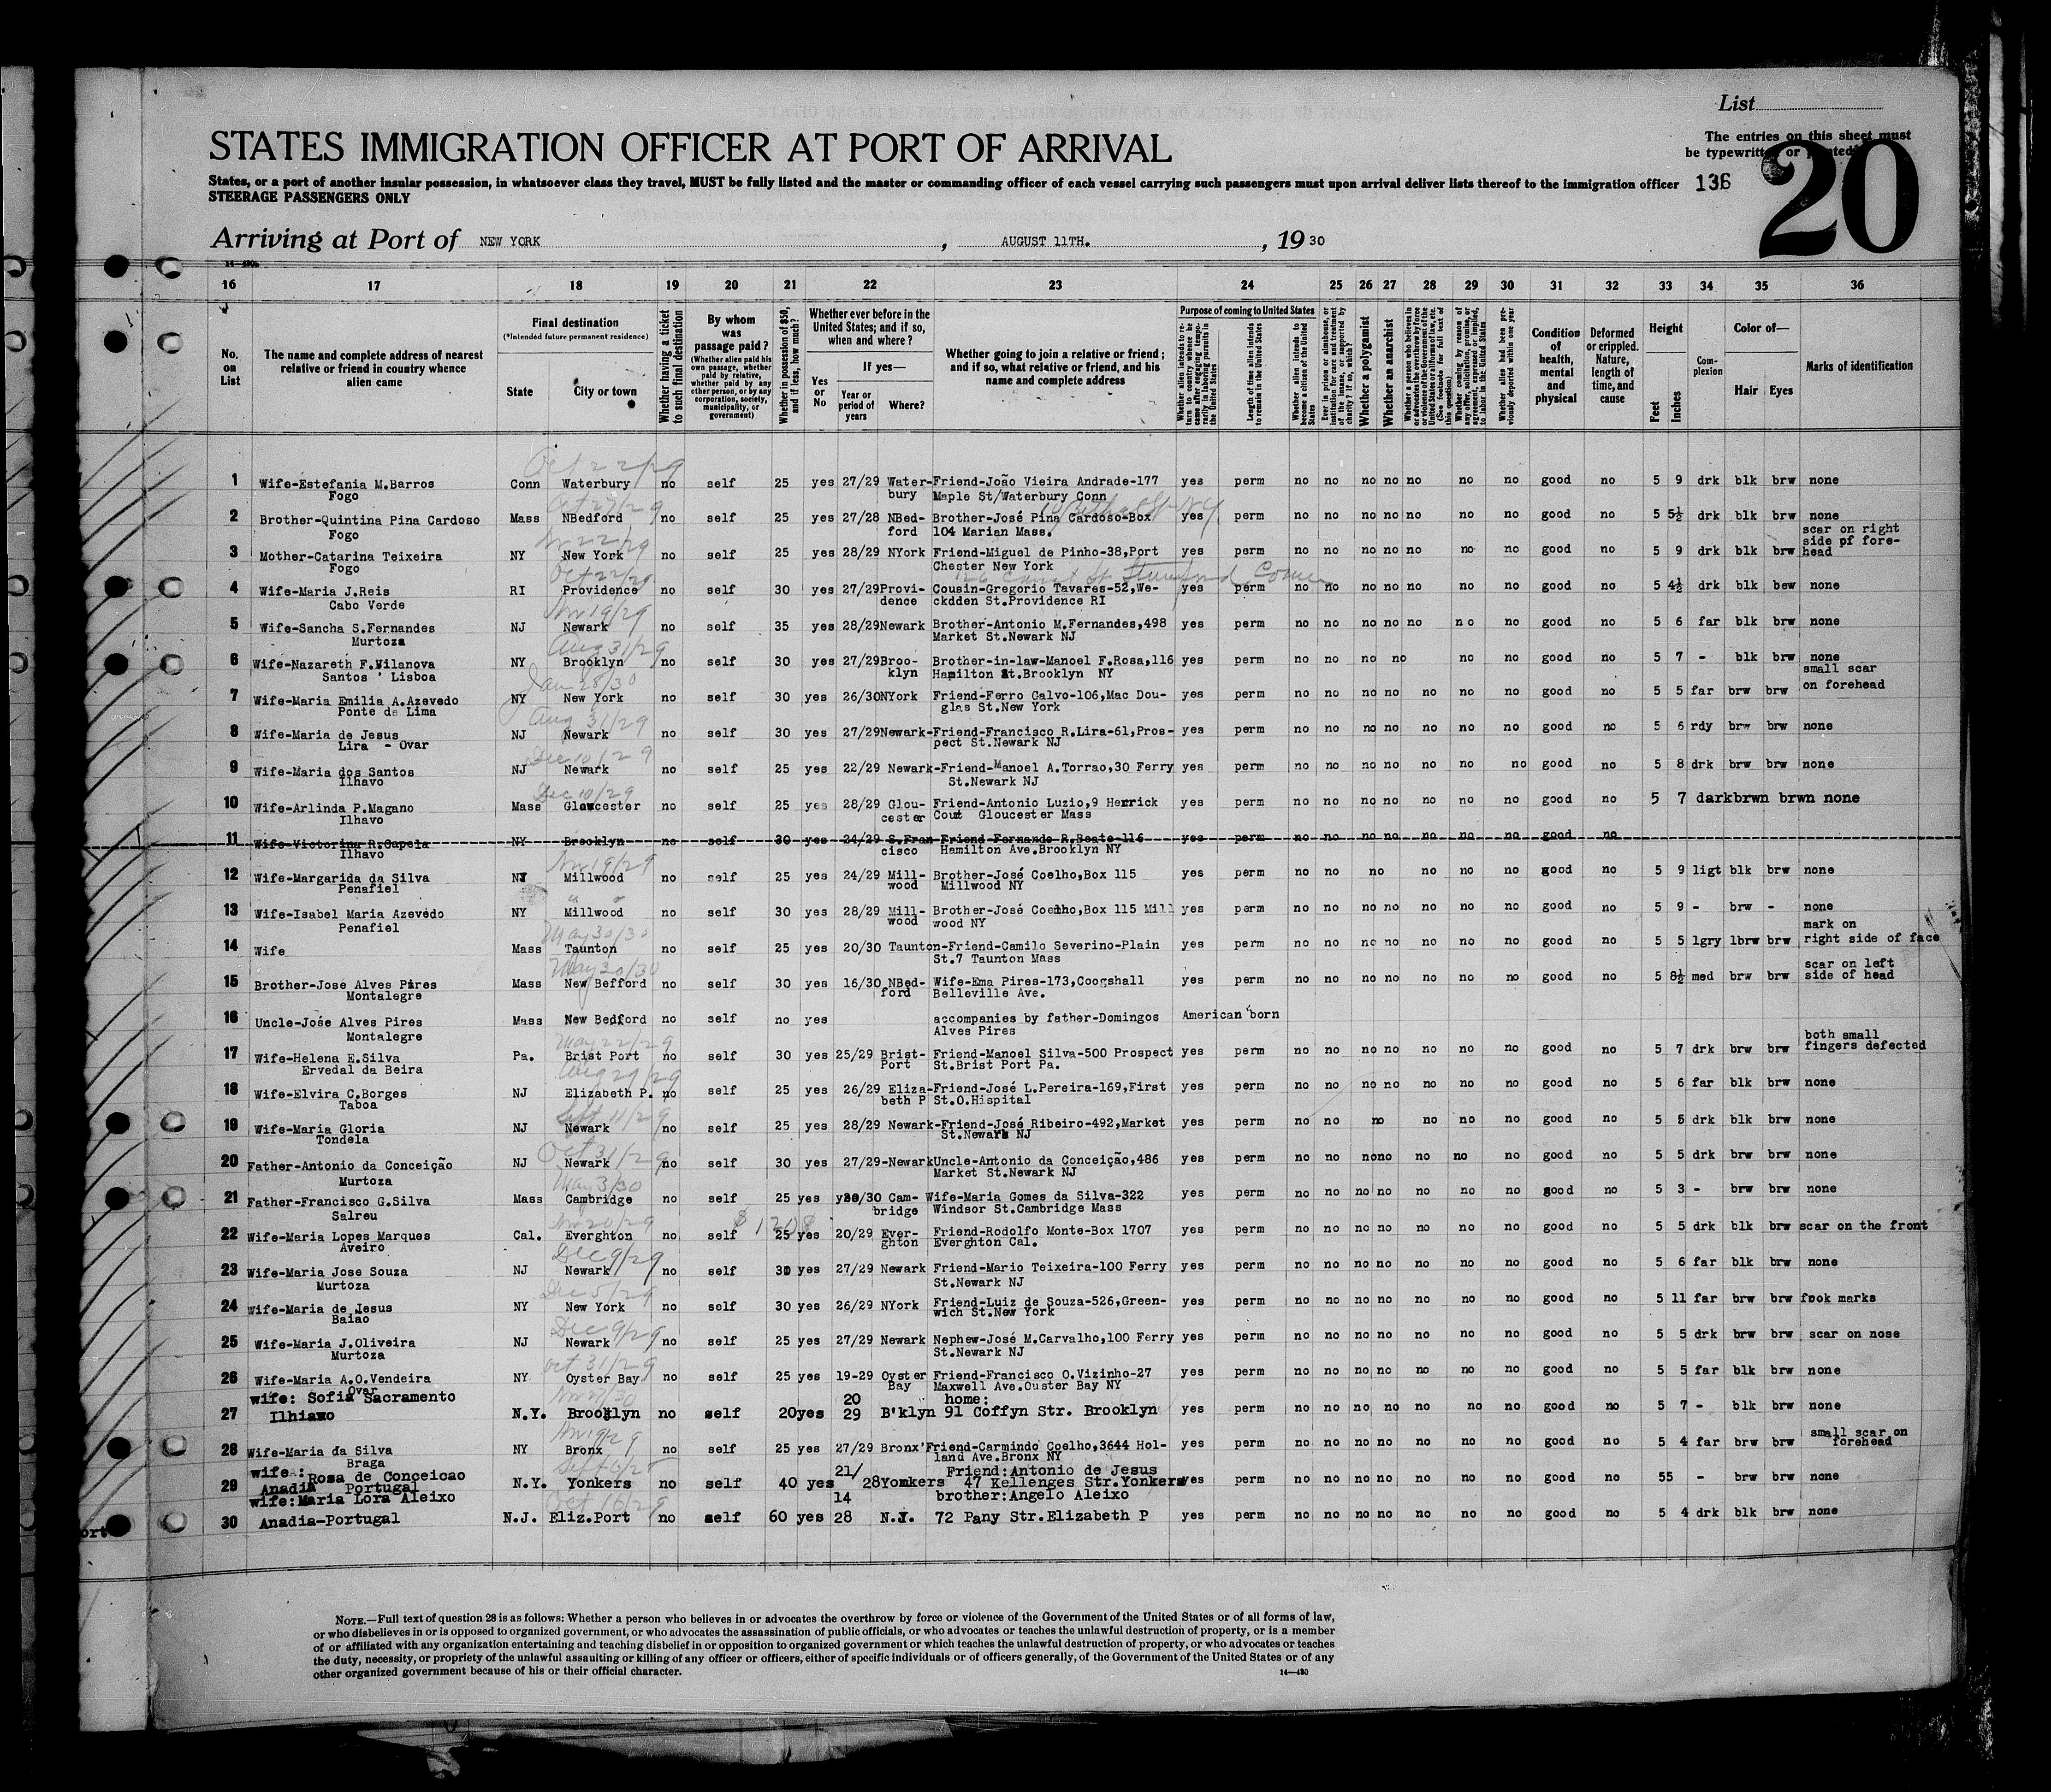 List
The entries on this sheet must
be typewritten or printed
STATES IMMIGRATION OFFICER AT PORT OF ARRIVAL
States, or a port of another insular possession, in whatsoever class they travel, MUST be fully listed and the master or commanding officer of each vessel carrying such passengers must upon arrival deliver lists thereof to the immigration officer
136
20
STEERAGE PASSENGERS ONLY
Arriving at Port of NEW YORK, AUGUST 11TH., 1930
16 17 18 19 20 21 22 23 24 25 26 27 28 29 30 31 32 33 34 35 36
No. on List
The name and complete address of nearest relative or friend in country whence alien came
Final destination
(*Intended future permanent residence)
State
City or town
Whether having a ticket to such final destination
By whom was passage paid?
(Whether alien paid his own passage, whether paid by relative, whether paid by any other person, or by any corporation, society, municipality, or government)
Whether in possession of $50, and if less, how much?
Whether ever before in the United States; and if so, when and where?
Yes or No
If yes—
Year or period of years
Where?
Whether going to join a relative or friend; and if so, what relative or friend, and his name and complete address
Purpose of coming to United States
Length of time alien intends to remain in the United States
Whether alien intends to become a citizen of the United States
Whether a polygamist
Whether an anarchist
Condition of health, mental and physical
Deformed or crippled. Nature, length of time, and cause
Height
Feet
Inches
Complexion
Color of—
Hair
Eyes
Marks of identification
Oct 22/29
1 Wife-Estefania M.Barros Conn Waterbury no self 25 yes 27/29 Water- Friend-João Vieira Andrade-177 yes perm no no no no no no no good no 5 9 drk blk brw none
Fogo bury Maple St/Waterbury Conn
2 Brother-Quintina Pina Cardoso Mass NBedford no self 25 yes 27/28 NBed- Brother-José Pina Cardoso-Box yes perm no no no no no no no good no 5 5½ drk blk brw none
Fogo ford 104 Marian Mass.
scar on right
side pf fore-
3 Mother-Catarina Teixeira NY New York no self 25 yes 28/29 NYork Friend-Miguel de Pinho-38,Port yes perm no no no no no no no good no 5 9 drk blk brw head
Fogo Chester New York
Oct 22/29
4 Wife-Maria J.Reis RI Providence no self 30 yes 27/29 Provi- Cousin-Gregorio Tavares-52,We- yes perm no no no no no no no good no 5 4½ drk blk bew none
Cabo Verde dence ckdden St.Providence RI
Nov 19/29
5 Wife-Sancha S.Fernandes NJ Newark no self 35 yes 28/29 Newark Brother-Antonio M.Fernandes,498 yes perm no no no no no no no good no 5 6 far blk brw none
Murtoza Market St.Newark NJ
Aug 31/29
6 Wife-Nazareth F.Vilanova NY Brooklyn no self 30 yes 27/29 Broo- Brother-in-law-Manoel F.Rosa,116 yes perm no no no no no no good no 5 7 - blk brw none
Santos ' Lisboa klyn Hamilton St.Brooklyn NY
small scar
Jan 28/30
7 Wife-Maria Emilia A.Azevedo NY New York no self 30 yes 26/30 NYork Friend-Ferro Galvo-106,Mac Dou- yes perm no no no no no no no good no 5 5 far brw brw on forehead
Ponte de Lima glas St.New York
Aug 31/29
8 Wife-Maria de Jesus NJ Newark no self 30 yes 27/29 Newark- Friend-Francisco R.Lira-61,Pros- yes perm no no no no no no no good no 5 6 rdy brw brw none
Lira - Ovar pect St.Newark NJ
Dec 10/29
9 Wife-Maria dos Santos NJ Newark no self 25 yes 22/29 Newark- Friend-Manoel A.Torrao,30 Ferry yes perm no no no no no no no good no 5 8 drk brw brw none
Ilhavo St.Newark NJ
Dec 10/29
10 Wife-Arlinda P.Magano Mass Gloucester no self 25 yes 28/29 Glou- Friend-Antonio Luzio,9 Herrick yes perm no no no no no no no good no 5 7 dark brwn brwn none
Ilhavo cester Court Gloucester Mass
11 Wife-Victorina R.Capela NY Brooklyn no self 30 yes 24/29 S.Fran Friend-Fernando R.Beate-116 yes perm no no no no no no no good no
Ilhavo cisco Hamilton Ave.Brooklyn NY
Nov 19/29
12 Wife-Margarida da Silva NY Millwood no self 25 yes 24/29 Mill- Brother-José Coelho,Box 115 yes perm no no no no no no good no 5 9 ligt blk brw none
Penafiel wood Millwood NY
13 Wife-Isabel Maria Azevedo NY Millwood no self 30 yes 28/29 Mill- Brother-José Coelho,Box 115 Mill yes perm no no no no no no no good no 5 9 - brw - none
Penafiel wood wood NY
mark on
May 30/30
14 Wife Mass Taunton no self 25 yes 20/30 Taunton- Friend-Camilo Severino-Plain yes perm no no no no no no no good no 5 5 lgry lbrw brw right side of face
St.7 Taunton Mass
scar on left
May 30/30
15 Brother-José Alves Pires Mass New Befford no self 30 yes 16/30 NBed- Wife-Ema Pires-173,Coogshall yes perm no no no no no no no good no 5 8½ med brw brw side of head
Montalegre ford Belleville Ave.
16 Uncle-José Alves Pires Mass New Bedford no self no yes accompanies by father-Domingos American born
Montalegre Alves Pires
both small
May 22/29
17 Wife-Helena E.Silva Pa. Brist Port no self 30 yes 25/29 Brist- Friend-Manoel Silva-500 Prospect yes perm no no no no no no no good no 5 7 drk brw brw fingers defected
Ervedal da Beira Port St.Brist Port Pa.
Aug 29/29
18 Wife-Elvira C.Borges NJ Elizabeth P. no self 25 yes 26/29 Eliza- Friend-José L.Pereira-169,First yes perm no no no no no no no good no 5 6 far blk brw none
Taboa beth P St.O.Hispital
Sept 11/29
19 Wife-Maria Gloria NJ Newark no self 25 yes 28/29 Newark- Friend-José Ribeiro-492,Market yes perm no no no no no no good no 5 5 drk blk brw none
Tondela St.Newark NJ
Oct 31/29
20 Father-Antonio da Conceição NJ Newark no self 30 yes 27/29 -Newark Uncle-Antonio da Conceição,486 yes perm no no no no no no no good no 5 5 drk brw brw none
Murtoza Market St.Newark NJ
May 3/30
21 Father-Francisco G.Silva Mass Cambridge no self 25 yes /30 Cam- Wife-Maria Gomes da Silva-322 yes perm no no no no no no no good no 5 3 - brw brw none
Salreu bridge Windsor St.Cambridge Mass
Nov 20/29 $120
22 Wife-Maria Lopes Marques Cal. Everghton no self 25 yes 20/29 Ever- Friend-Rodolfo Monte-Box 1707 yes perm no no no no no no no good no 5 5 drk blk brw scar on the front
Aveiro ghton Everghton Cal.
Dec 9/29
23 Wife-Maria Jose Souza NJ Newark no self 30 yes 27/29 Newark Friend-Mario Teixeira-100 Ferry yes perm no no no no no no no good no 5 6 far blk brw none
Murtoza St.Newark NJ
Dec 5/29
24 Wife-Maria de Jesus NY New York no self 30 yes 26/29 NYork Friend-Luiz de Souza-526,Green- yes perm no no no no no no no good no 5 11 far brw brw fook marks
Baiao wich St.New York
Dec 9/29
25 Wife-Maria J.Oliveira NJ Newark no self 25 yes 27/29 Newark Nephew-José M.Carvalho,100 Ferry yes perm no no no no no no no good no 5 5 drk brw brw scar on nose
Murtoza St.Newark NJ
Oct 31/29
26 Wife-Maria A.O.Vendeira NY Oyster Bay no self 25 yes 19-29 Oyster Friend-Francisco O.Vizinho-27 yes perm no no no no no no no good no 5 5 far blk brw none
Ovar Bay Maxwell Ave.Ouster Bay NY
wife: Sofia Sacramento 20 home:
27 Ilhiawo N.Y. Brooklyn no self 20 yes 29 B'klyn 91 Coffyn Str. Brooklyn yes perm no no no no no no no good no 5 7 - blk brw none
28 Wife-Maria da Silva NY Bronx no self 25 yes 27/29 Bronx' Friend-Carmindo Coelho,3644 Hol- yes perm no no no no no no no good no 5 4 far brw brw small scar on forehead
Braga land Ave.Bronx NY
wife: Rosa de Conceicao 21/ Friend:Antonio de Jesus
29 Anadia Portugal N.Y. Yonkers no self 40 yes 28 Yonkers 47 Kellenges Str.Yonkers yes perm no no no no no no no good no 5 5 - brw brw none
wife:Maria Lora Aleixo 14 brother:Angelo Aleixo
Oct 16/29
30 Anadia-Portugal N.J. Eliz.Port no self 60 yes 28 N.J. 72 Pany Str.Elizabeth P yes perm no no no no no no no good no 5 4 drk blk brw none
NOTE.—Full text of question 28 is as follows: Whether a person who believes in or advocates the overthrow by force or violence of the Government of the United States or of all forms of law,
or who disbelieves in or is opposed to organized government, or who advocates the assassination of public officials, or who advocates or teaches the unlawful destruction of property, or is a member
of or affiliated with any organization entertaining and teaching disbelief in or opposition to organized government or which teaches the unlawful destruction of property, or who advocates or teaches
the duty, necessity, or propriety of the unlawful assaulting or killing of any officer or officers, either of specific individuals or of officers generally, of the Government of the United States or of any
other organized government because of his or their official character.
14—430